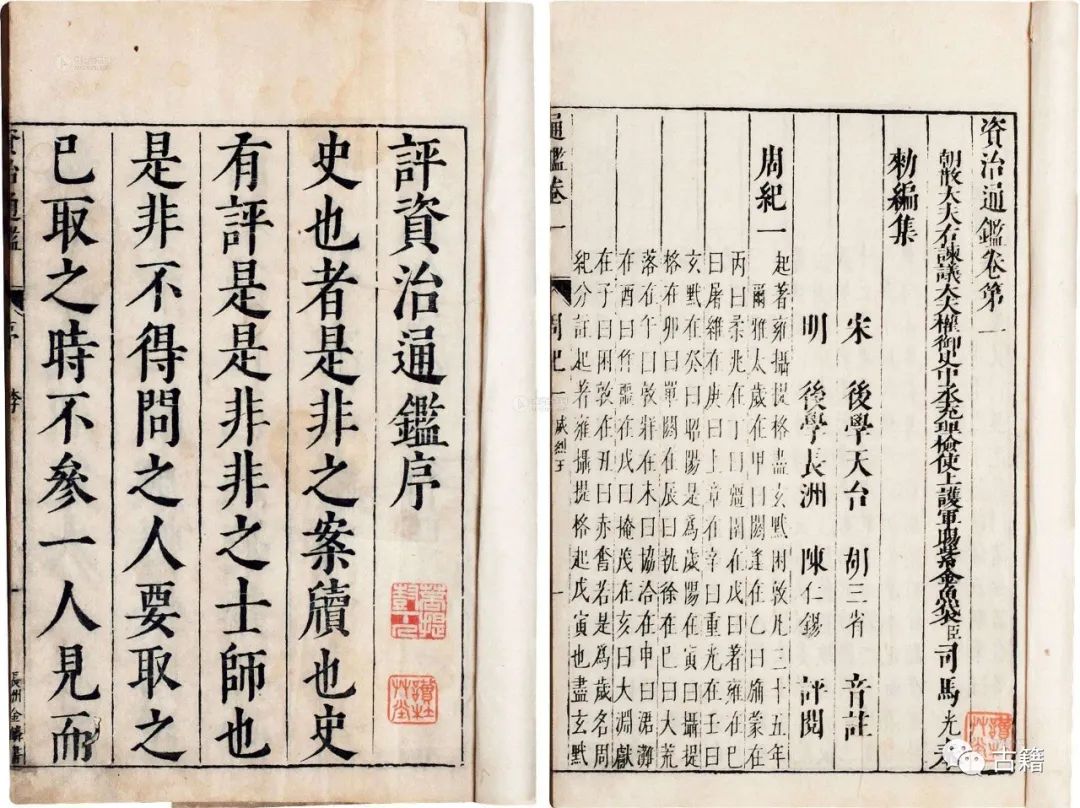 評資治通鑑序
史也者是非之案牘也史
有評是是非非之士師也
是非不得問之人要取之
已取之時不參一人見而
資治通鑑
序
長洲金麟書
讀杜艸堂
資治通鑑卷第一
朝散大夫右諫議大夫權御史中丞充理檢使上護軍賜紫金魚袋臣司馬光奉
勅編集
宋 後學天台 胡三省 音註
明 後學長洲 陳仁錫 評閱
周紀一 起著雍攝提格盡玄黓困敦凡三十五年
爾雅太歲在甲曰閼逢在乙曰旃蒙在
丙曰柔兆在丁曰疆圉在戊曰著雍在巳
曰屠維在庚曰上章在辛曰重光在壬曰
玄黓在癸曰昭陽是爲歲陽在寅曰攝提
格在卯曰單閼在辰曰執徐在巳曰大荒
落在午曰敦牂在未曰協洽在申曰涒灘
在酉曰作噩在戌曰掩茂在亥曰大淵獻
在子曰困敦在丑曰赤奮若是爲歲名周
紀分註起著雍攝提格起戊寅也盡玄黓
通鑑卷一
周紀一 威烈王
一
讀杜艸堂
古籍